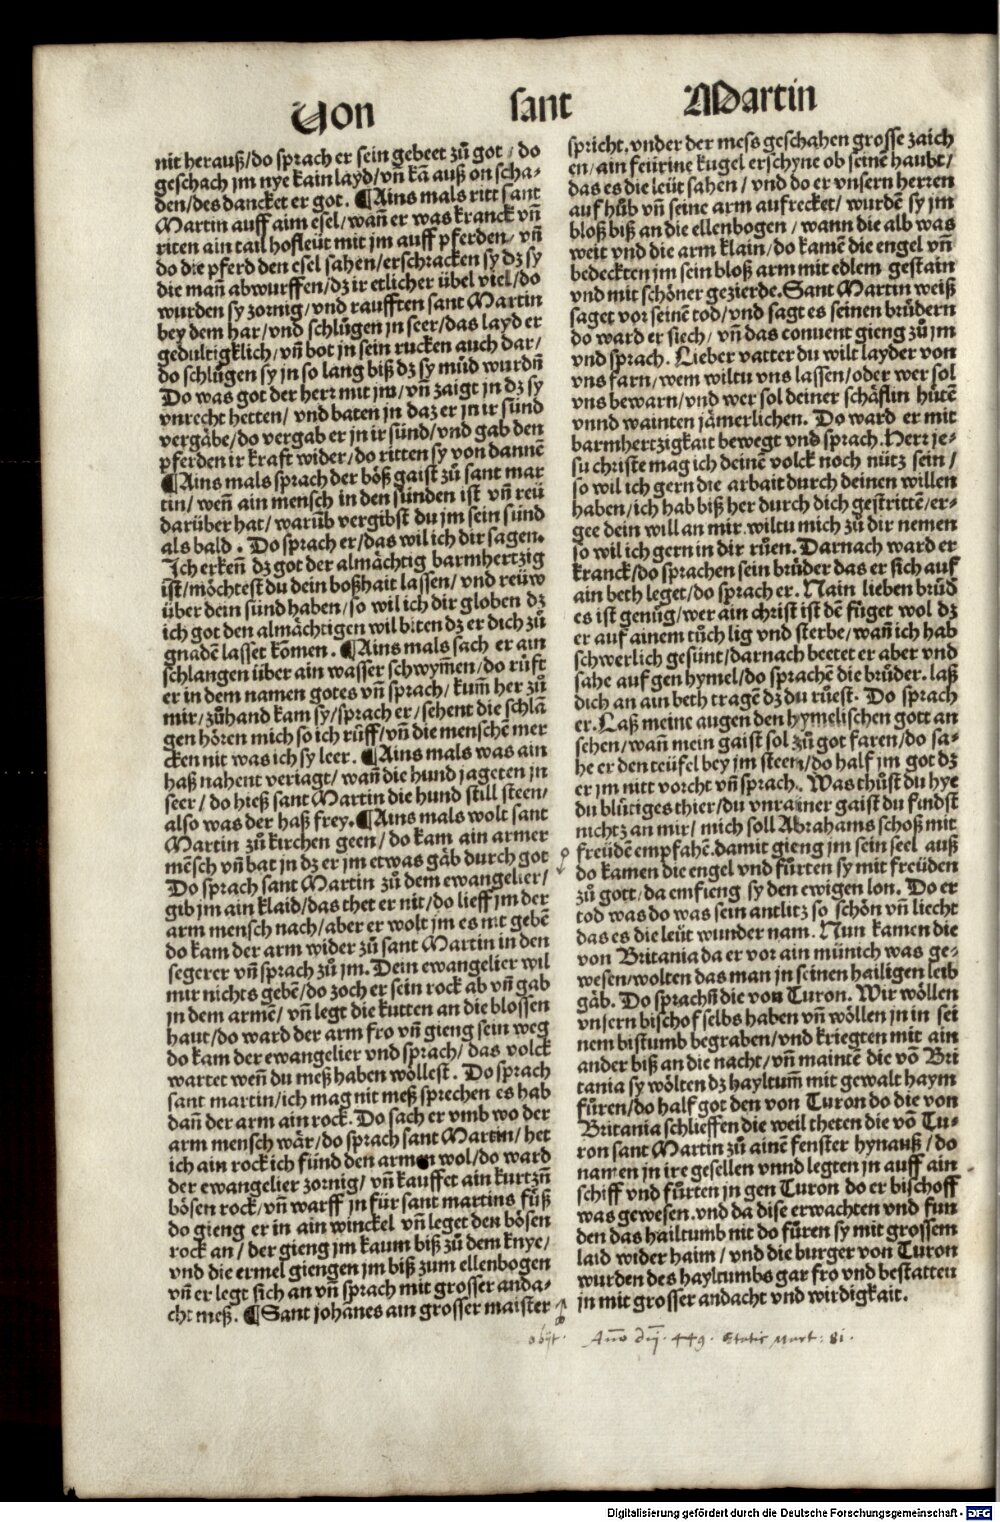 Von sant Martin
nit herauß/do sprach er sein gebeet zů got / do
geschach jm nye kain layd/vñ kã auß on scha-
den/des dancket er got. ¶Ains mals ritt sant
Martin auff aim esel/wañ er was kranck vñ
riten ain tail hofleüt mit jm auff pferden/ vñ
do die pferd den esel sahen/erschracken sy dz sy
die mañ abwurffen/dz ir etlicher übel viel/do
wurden sy zornig/vnd raufften sant Martin
bey dem har/vnd schlůgen jn seer/das layd er
gedultigklich/vñ bot jn sein rucken auch dar/
do schlůgen sy jn so lang biß dz sy můd wurdñ
Do was got der herr mit jm/vñ zaigt jn dz sy
vnrecht hetten/ vnd baten jn daz er jn ir sünd
vergäbe/do vergab er jn ir sünd/vnd gab den
pferden ir kraft wider/do ritten sy von dannẽ
¶Ains mals sprach der böß gaist zů sant mar
tin/ weñ ain mensch in den sünden ist vñ reü
darüber hat/ warũb vergibst du jm sein sünd
als bald. Do sprach er/das wil ich dir sagen.
Ich erkeñ dz got der almächtig barmhertzig
ist/möchtest du dein boßhait lassen/ vnd reüw
über dein sünd haben/so wil ich dir globen dz
ich got den almächtigen wil biten dz er dich zů
gnadẽ lasset komen. ¶Ains mals sach er ain
schlangen über ain wasser schwym̃en/do růft
er in dem namen gotes vñ sprach/ kum̃ her zů
mir/zůhand kam sy/sprach er/sehent die schlã
gen hören mich so ich růff/vñ die menschẽ mer
cken nit was ich sy leer. ¶Ains mals was ain
haß nahent veriagt/ wañ die hund jageten jn
seer/ do hieß sant Martin die hund still steen/
also was der haß frey. ¶Ains mals wolt sant
Martin zů kirchen geen/ do kam ain armer
mẽsch vñ bat jn dz er jm etwas gäb durch got
Do sprach sant Martin zů dem ewangelier/
gib jm ain klaid/das thet er nit/do lieff jm der
arm mensch nach/aber er wolt jm es nit gebẽ
do kam der arm wider zů sant Martin in den
segerer vñ sprach zů jm. Dein ewangelier wil
mir nichts gebẽ/do zoch er sein rock ab vñ gab
jn dem armẽ/ vñ legt die kutten an die blossen
haut/do ward der arm fro vñ gieng sein weg
do kam der ewangelier vnd sprach/ das volck
wartet weñ du meß haben wöllest. Do sprach
sant martin/ich mag nit meß sprechen es hab
dañ der arm ain rock. Do sach er vmb wo der
arm mensch wär/do sprach sant Martin/ het
ich ain rock ich fünd den armen wol/do ward
der ewangelier zornig/ vñ kauffet ain kurtzñ
bösen rock/vñ warff jn für sant martins fůß
do gieng er in ain winckel vñ leget den bösen
rock an/ der gieng jm kaum biß zů dem knye/
vnd die ermel giengen jm biß zum ellenbogen
vñ er legt sich an vñ sprach mit grosser anda-
cht meß. ¶Sant johãnes ain grosser maister
spricht. vnder der mess geschahen grosse zaich
en/ain feürine kugel erschyne ob seinẽ haubt/
das es die leüt sahen/ vnd do er vnsern herren
auf hůb vñ seine arm aufrecket/ wurdẽ sy jm
bloß biß an die ellenbogen/ wann die alb was
weit vnd die arm klain/do kamẽ die engel vñ
bedeckten jm sein bloß arm mit edlem gestain
vnd mit schöner gezierde. Sant Martin weiß
saget vor seinẽ tod/vnd sagt es seinen brůdern
do ward er siech/ vñ das conuent gieng zů jm
vnd sprach. Lieber vatter du wilt layder von
vns farn/wem wiltu vns lassen/oder wer sol
vns bewarn/vnd wer sol deiner schäflin hütẽ
vnnd wainten jämerlichen. Do ward er mit
barmhertzigkait bewegt vnd sprach. Herr je-
su christe mag ich deinẽ volck noch nütz sein/
so wil ich gern die arbait durch deinen willen
haben/ich hab biß her durch dich gestrittẽ/er-
gee dein will an mir. wiltu mich zů dir nemen
so wil ich gern in dir růen. Darnach ward er
kranck/do sprachen sein brůder das er sich auf
ain beth leget/do sprach er. Nain lieben brůd
es ist genůg/wer ain christ ist dẽ füget wol dz
er auf ainem tůch lig vnd sterbe/wañ ich hab
schwerlich gesünt/darnach beetet er aber vnd
sahe auf gen hymel/do sprachẽ die brůder. laß
dich an ain beth tragẽ dz du rüest. Do sprach
er. Laß meine augen den hymelischen gott an
sehen/wañ mein gaist sol zů got faren/do sa-
he er den teüfel bey jm steen/do half jm got dz
er jm nitt vorcht vñ sprach. Was thůst du hye
du blůtiges thier/du vnrainer gaist du findst
nichtz an mir/ mich soll Abrahams schoß mit
freüdẽ empfahẽ. damit gieng jm sein seel auß
do kamen die engel vnd fůrten sy mit freüden
zů gott/da emfieng sy den ewigen lon. Do er
tod was do was sein antlitz so schön vñ liecht
das es die leüt wunder nam. Nun kamen die
von Britania da er vor ain münich was ge-
wesen/wolten das man jn seinen hailigen leib
gäb. Do sprachñ die von Turon. Wir wöllen
vnsern bischof selbs haben vñ wöllen jn in sei
nem bistumb begraben/vnd kriegten mit ain
ander biß an die nacht/vñ maintẽ die võ Bri
tania sy wölten dz hayltum̃ mit gewalt haym
füren/do half got den von Turon do die von
Britania schlieffen die weil theten die võ Tu-
ron sant Martin zů ainẽ fenster hynauß/do
namen jn ire gesellen vnnd legten jn auff ain
schiff vnd fůrten jn gen Turon do er bischoff
was gewesen. vnd da dise erwachten vnd fun
den das hailtumb nit do fůren sy mit grossem
laid wider haim/ vnd die burger von Turon
wurden des hayltumbs gar fro vnd bestatten
jn mit grosser andacht vnd wirdigkait.
obijt. Año dñj. 449. Etatis 81.
Digitalisierung gefördert durch die Deutsche Forschungsgemeinschaft - DFG